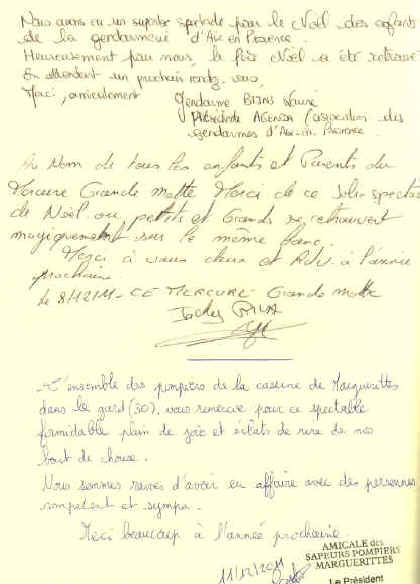 Nous avons eu un superbe spectacle pour le Noël des enfants
de la gendarmerie d'Aix en Provence.
Heureusement pour nous, le père Noël a été retrouvé
En attendant un prochain rendez-vous,
Merci, amicalement
Gendarme
Présidente AGENDA (association des
gendarmes d'Aix-en-Provence
Au Nom de tous les enfants et Parents du
Mercure Grande motte Merci de ce Jolis spectacle
de Noël ou petits et Grands se retrouvent
magiquement sur le même banc.
Merci à vous deux et RDV à l'année
prochaine
CE MERCURE Grande motte
L'ensemble des pompiers de la caserne de Marguerittes
dans le gard (30), vous remercie pour ce spectable
formidable plein de joie et éclats de rire de nos
bout de choux.
Nous sommes ravies d'avoir eu affaire avec des personnes
compétent et sympa.
Merci beaucoup à l'année prochaine.
11/12/2011
AMICALE des
SAPEURS POMPIERS
MARGUERITTES
Le Président